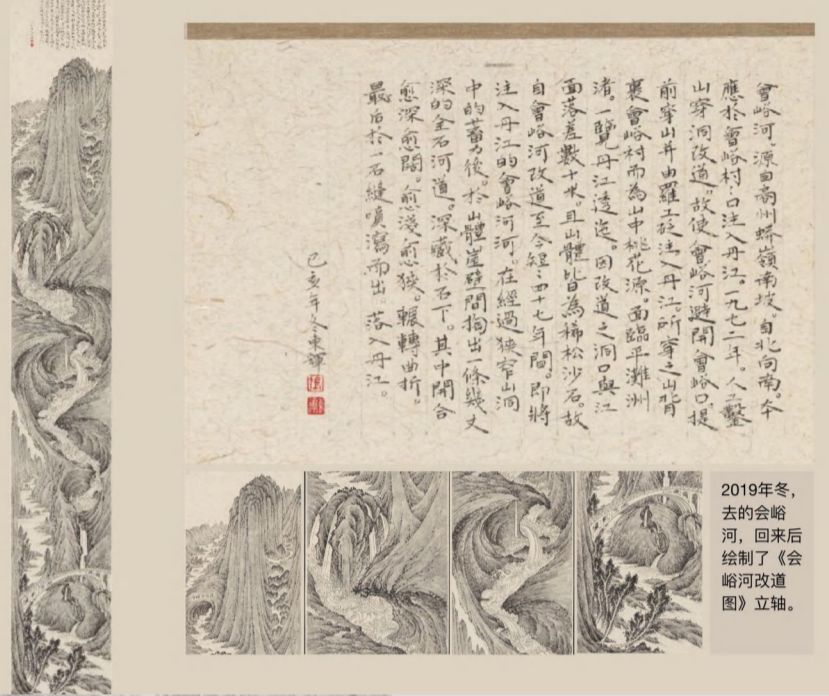 會峪河。源自商州蟒嶺南坡。自北向南。本
應於會峪村口注入丹江。一九七二年。人工鑿
山穿洞改道。故使會峪河避開會峪口。提
前穿山并由羅工砭注入丹江。所穿之山背
裏會峪村而為山中桃花源。面臨平灘洲
渚。一覽丹江逶迤。因改道之洞口與江
面落差數十米。且山體皆為稀松沙石。故
自會峪河改道至今短:四十七年間。即將
注入丹江的會峪河河。在經過狹窄山洞
中的蓄力後。於山體崖壁間掏出一條幾丈
深的全石河道。深藏於石下。其中開合
愈深愈闊。愈淺愈狹。輾轉曲折。
最后於一石縫噴瀉而出。落入丹江。
己亥年冬東輝
2019年冬，
去的会峪
河，回来后
绘制了《会
峪河改道
图》立轴。